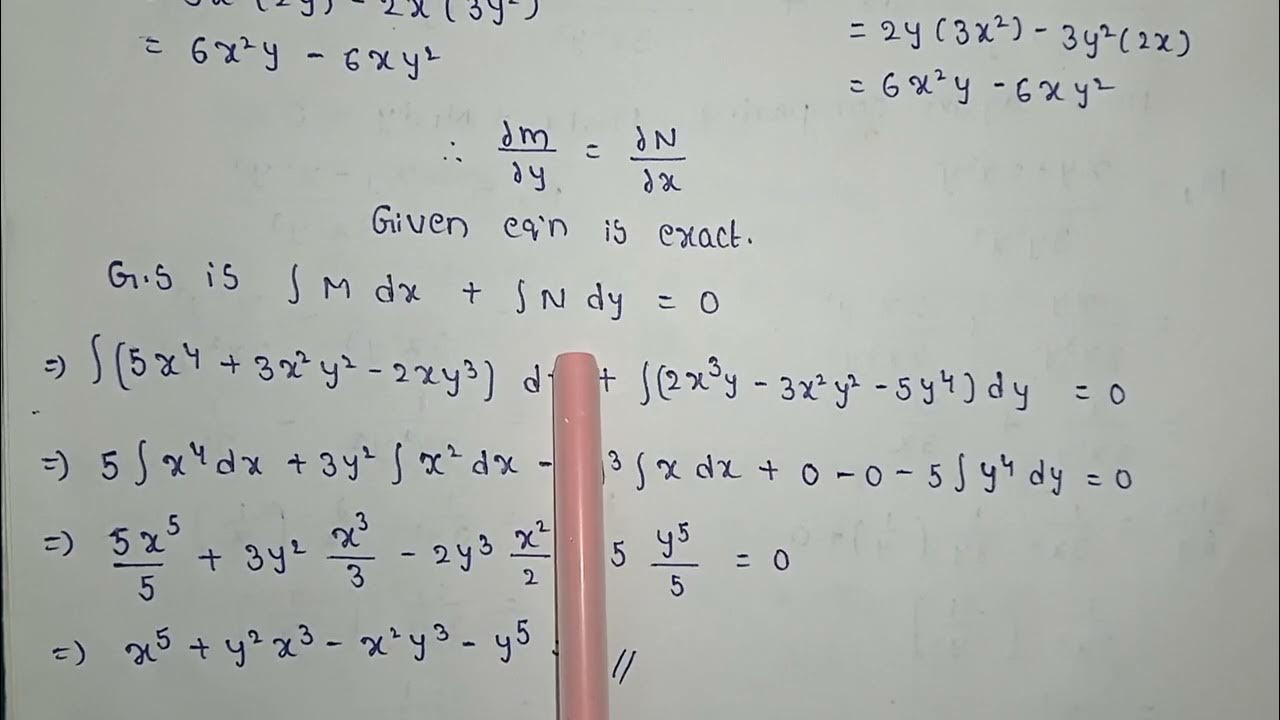 (2y) - 2x (3y²)
= 6x²y - 6xy²
= 2y (3x²) - 3y² (2x)
= 6x²y - 6xy²
∴ ∂M/∂y = ∂N/∂x
Given eq'n is exact.
G.S is ∫ M dx + ∫ N dy = 0
=) ∫(5x⁴ + 3x²y² - 2xy³) d + ∫(2x³y - 3x²y² - 5y⁴) dy = 0
=) 5 ∫ x⁴ dx + 3y² ∫ x² dx - ³ ∫ x dx + 0 - 0 - 5 ∫ y⁴ dy = 0
=) 5x⁵/5 + 3y² x³/3 - 2y³ x²/2 5 y⁵/5 = 0
=) x⁵ + y²x³ - x²y³ - y⁵ //